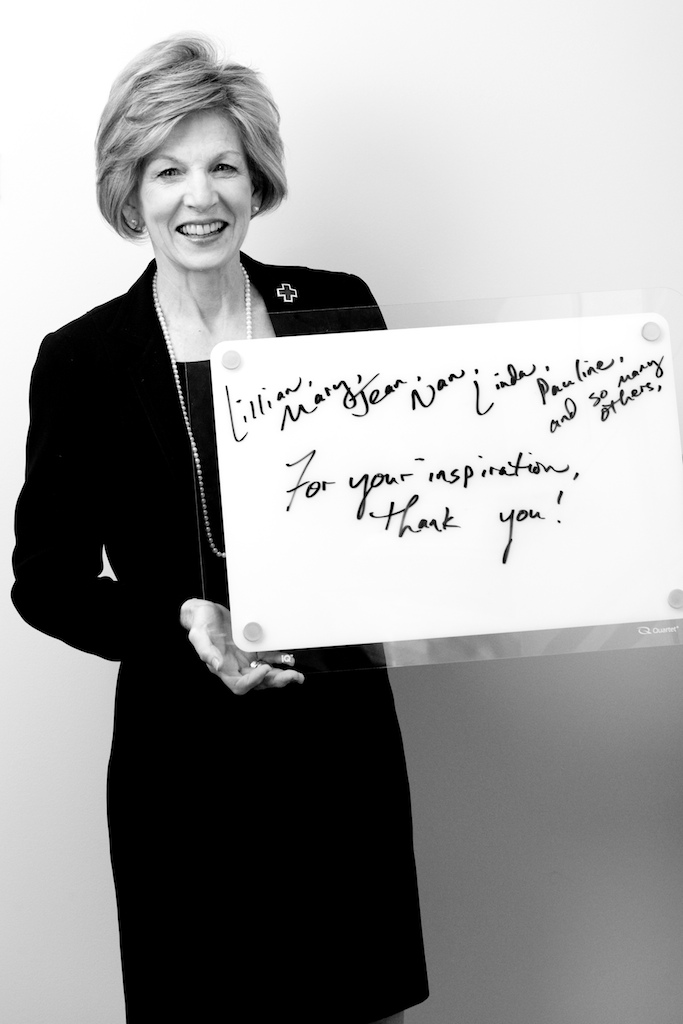 Lillian, Mary, Jean, Nan, Linda, Pauline,
and so many
others,
For your inspiration,
thank you!
Quartet®